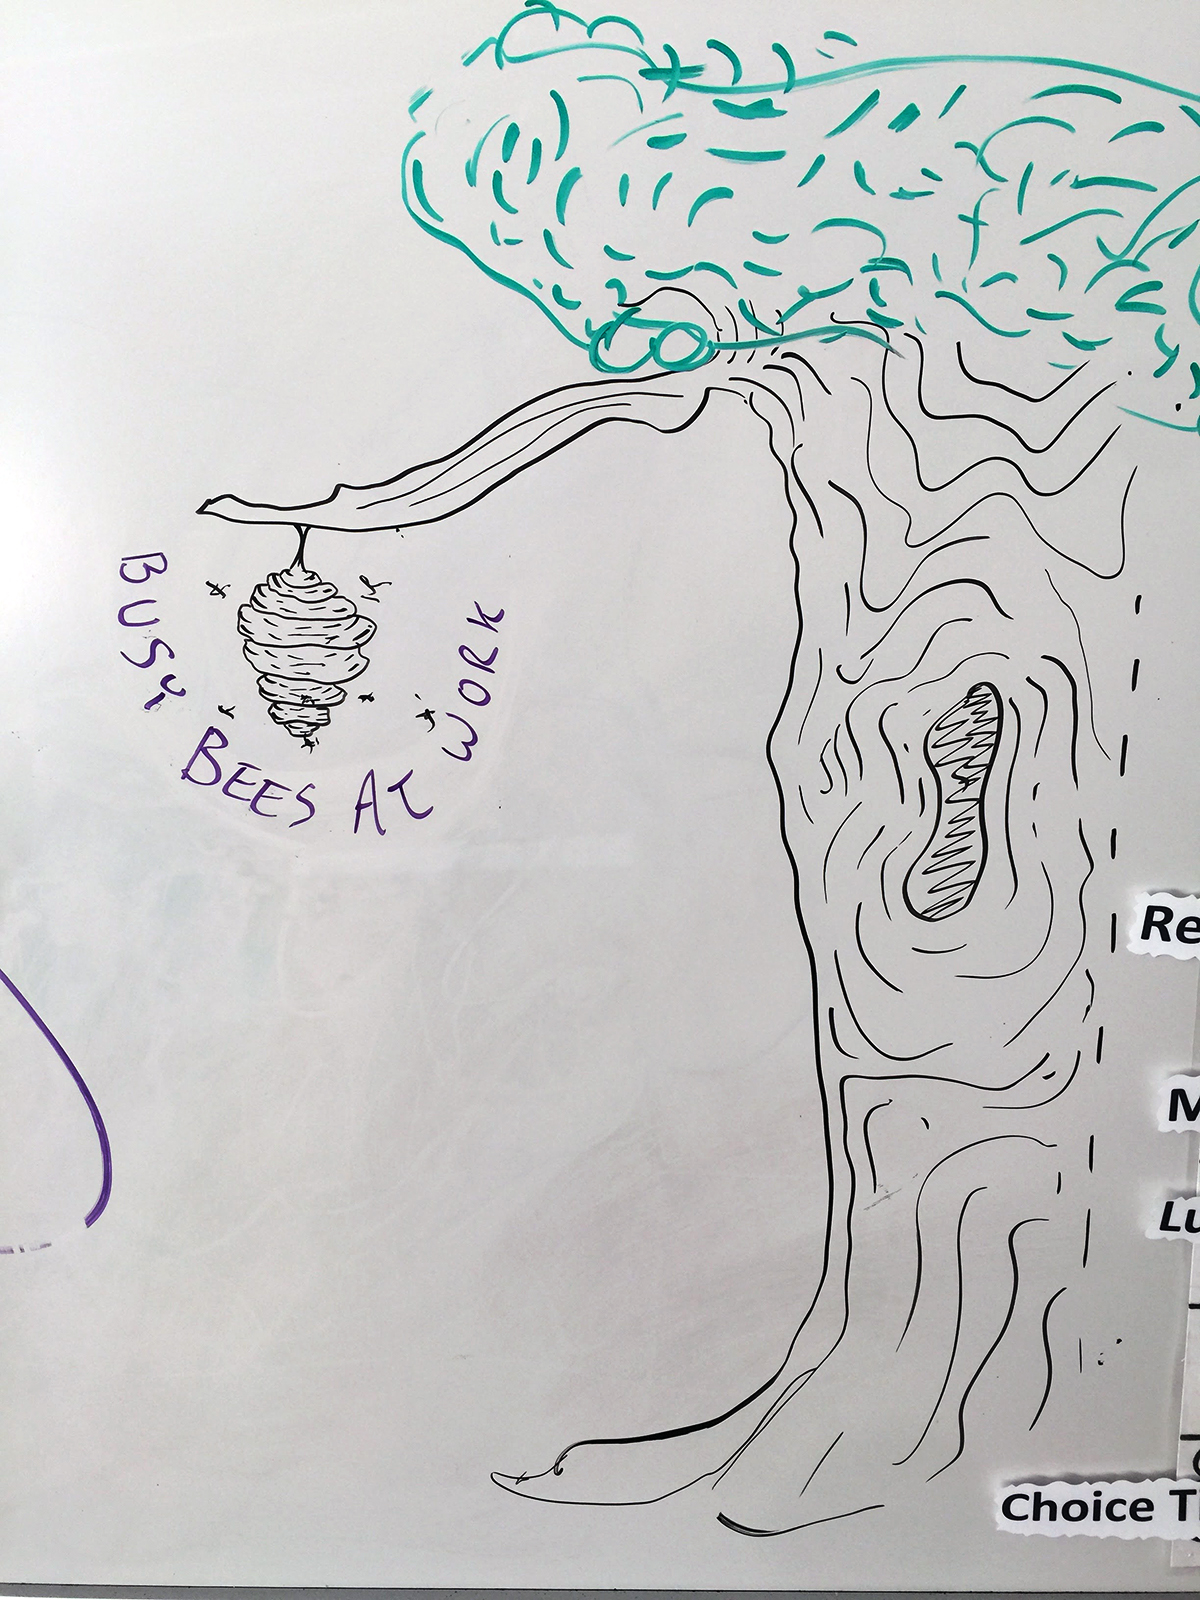 BUSY BEES AT WORK
Re
M
Lu
Choice Ti